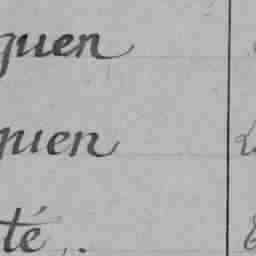 quen
quen
té.